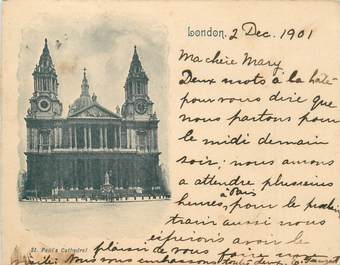 London, 2 Dec. 1901
Ma chère Mary
Deux mots à la hâte
pour vous dire que
nous partons pour
le midi demain
soir; nous avons
a attendre plusieurs
à Paris
heures, pour le
train aussi nous
avoir le
St. Paul's Cathedral.
plaisir de vous faire
Nous vous embrassons